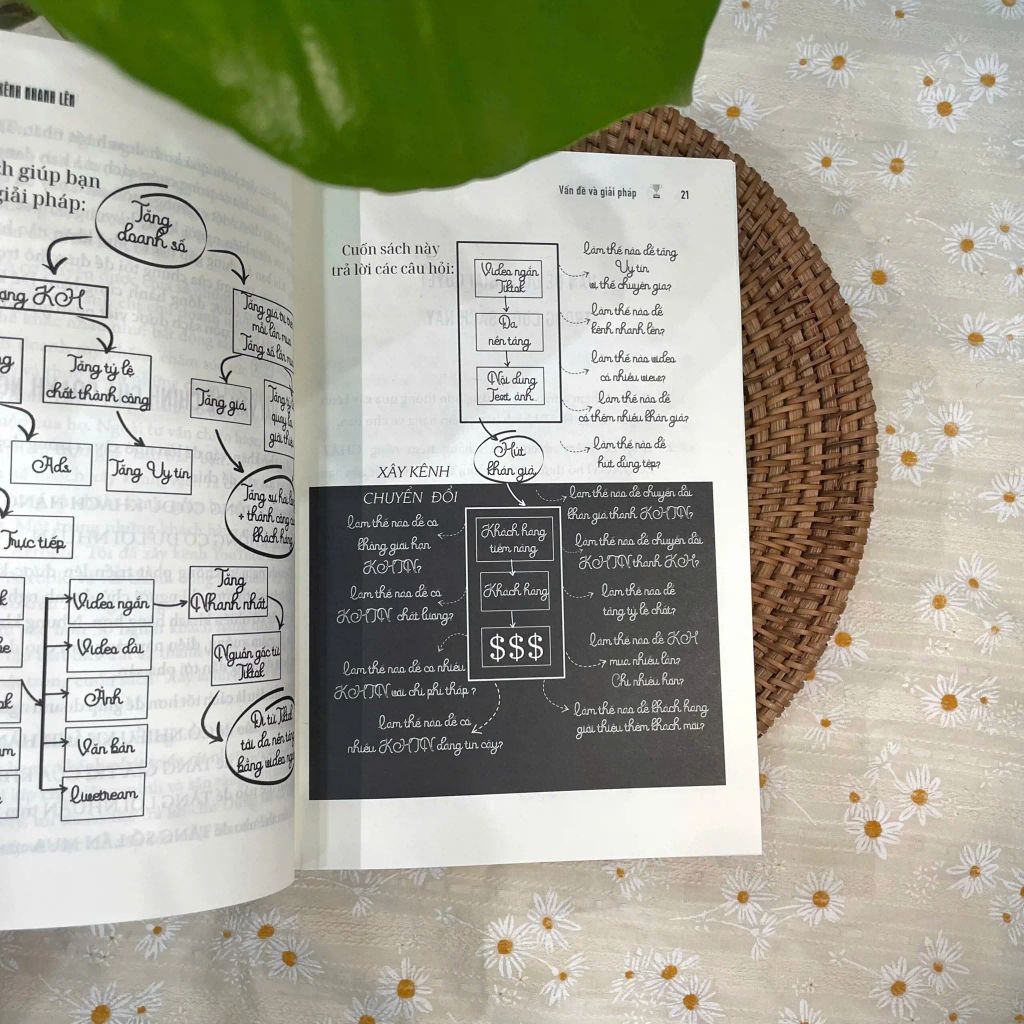 KÊNH NHANH LÊN
giúp bạn
giải pháp:
Tăng
doanh số
KH
Tăng tỷ lệ
chốt thành công
Ads
Tăng Uy tín
Trực tiếp
Tăng giá trị
mỗi lần mua
Tăng số lần
Tăng giá
+ thành công
khách hàng
Video ngắn
Video dài
Ảnh
Văn bản
Livetream
Tăng
Nhanh nhất
Nguồn gốc từ
Tiktok
Đi từ Tiktok
tối đa nền
bằng video
Vấn đề và giải pháp 21
Cuốn sách này
trả lời các câu hỏi:
Video ngắn
Tiktok
Đa
nền tảng
Nội dung
Text ảnh
làm thế nào để tăng
Uy tín
vị thế chuyên gia?
làm thế nào để
kênh nhanh lên?
làm thế nào video
có nhiều view?
làm thế nào để
có thêm nhiều khán giả?
làm thế nào để
hút đúng tệp?
Hút
khán giả
XÂY KÊNH
CHUYỂN ĐỔI
làm thế nào để chuyển đổi
khán giả thành KHTN?
làm thế nào để có
không giới hạn
KHTN?
Khách hàng
tiềm năng
làm thế nào để chuyển đổi
KHTN thành KH?
làm thế nào để có
KHTN chất lượng?
Khách hàng
làm thế nào để
tăng tỷ lệ chốt?
$$$
làm thế nào để KH
mua nhiều lần?
Chi nhiều hơn?
làm thế nào để có nhiều
KHTN với chi phí thấp?
làm thế nào để khách hàng
giới thiệu thêm khách mới?
làm thế nào để có
nhiều KHTN đáng tin cậy?